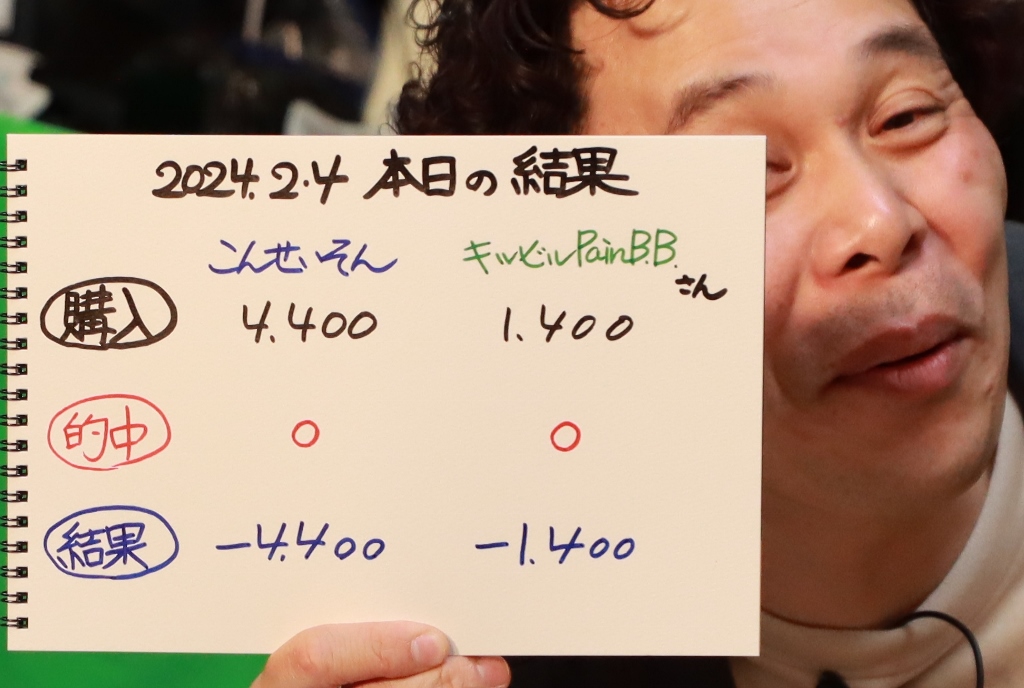 2024.2.4 本日の結果
こんせいそん キルビルPainB.B.
さん
購入 4.400 1.400
的中 0 0
結果 -4.400 -1.400